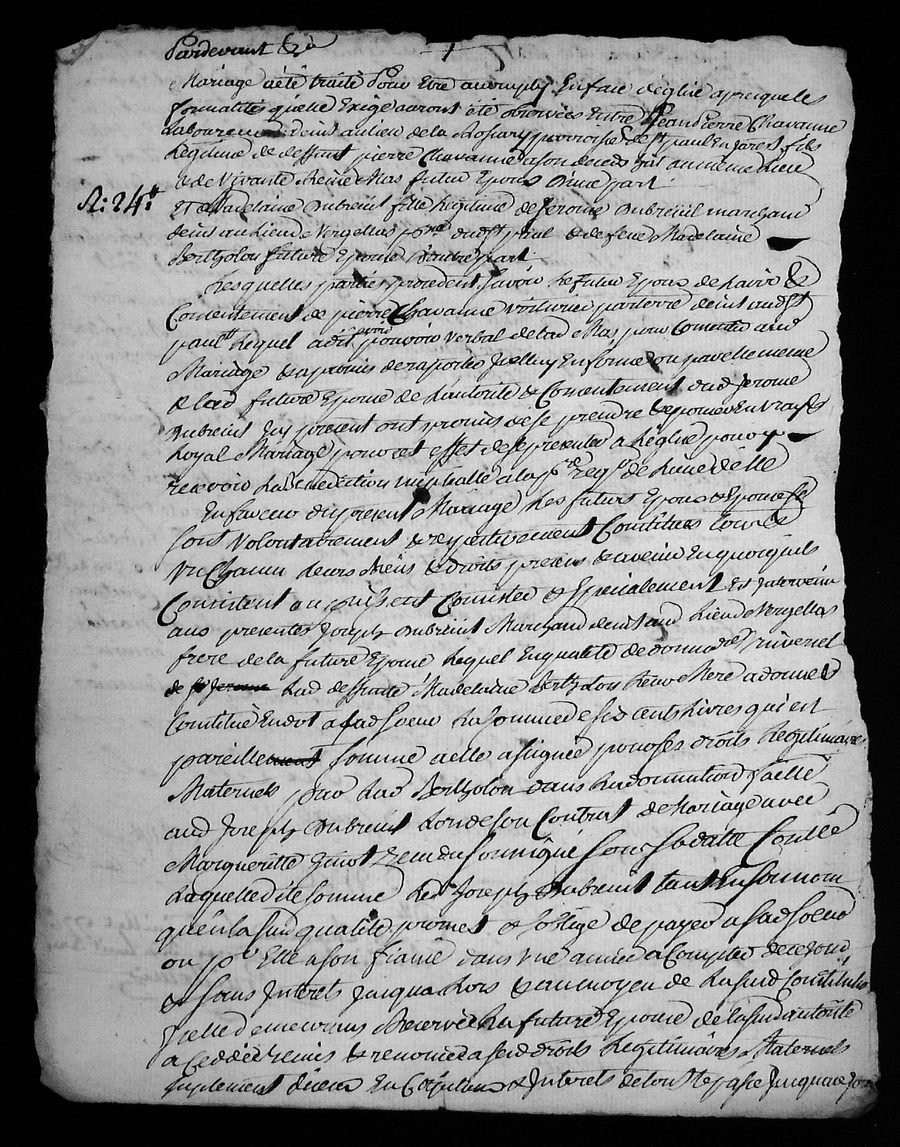 Pardevant &a
Mariage a été traité Pour Etre accomply En face d'église apres que les
formalités quelle Exige auront été observées Entre Jean Pierre Chavanne
Laboureur demt au lieu de la paroisse de St paul En Jarest fils
Légitime de deffunt pierre Chavanne a son deceds au meme Lieu
& de Vivante Reine Mas futur Epoux d'une part
N: 24:
Et Madelaine Dubreüil fille Legitime de Jerome Dubreüil marchand
demt au Lieu de Vergellas psse dud St paul & de feue Madelaine
Bertholon future Epouse d'autre part
Lesquelles parties procedent savoir Le futur Epoux de L'avis &
Consentement de pierre Chavanne voiturier par terre demt aud St
paul Lequel a dit avoir pouvoir verbal de lad Mas, pour Consentir aud
Mariage & a promis de raporter En forme
& lad future Epouse de L'autorité & Consentement dud Jerome
Dubreüil Icy present ont promis de se prendre & Epouser En vray &
Loyal Mariage pour cet effet de se presenter a L'église pour y
recevoir La Benediction nuptialle a la pre reqon de L'une d'elle
En faveur du present Mariage Les futurs Epoux & Epouse se
sont volontairement & respectivement Constitués tous &
Vn Chacun Leurs Biens & droits presens & avenir En quoy qu'ils
Consistent ou puissent Consister & Specialement Est Intervenu
aux presentes Joseph Dubreüil Marchand demt aud Lieu de Vergellas
frere de la future Epouse Lequel En qualité de donnare universel
de lad deffunte Madelaine Bertholon Leur Mere a donné &
Constitué En dot a sad soeur La somme de six cents Livres qui est
pareille somme a elle assignée pour ses droits Legitimaires
Maternels par lad Bertholon dans La donnation faitte
aud Joseph Dubreüil Lors de son Contrat de Mariage avec
Margueritte reçu du sousigné sous sa datte Conllé
Laquelle dite somme Led Joseph Dubreüil tant En son nom
qu'en la sud qualité promet & s'oblige de payer a sad soeur
ou pr Elle a son fiancé dans une année a Compter de ce jour
& sans Interets Jusqu'a Lors & au moyen de La sud Constitution
d'elle La future Epouse de la sud autorité
a Ceddé remis & renoncé a ses droits Legitimaires Maternels
suplement d'iceux En Capitaux & Interets de tout le passé Jusqu'a ce Jour